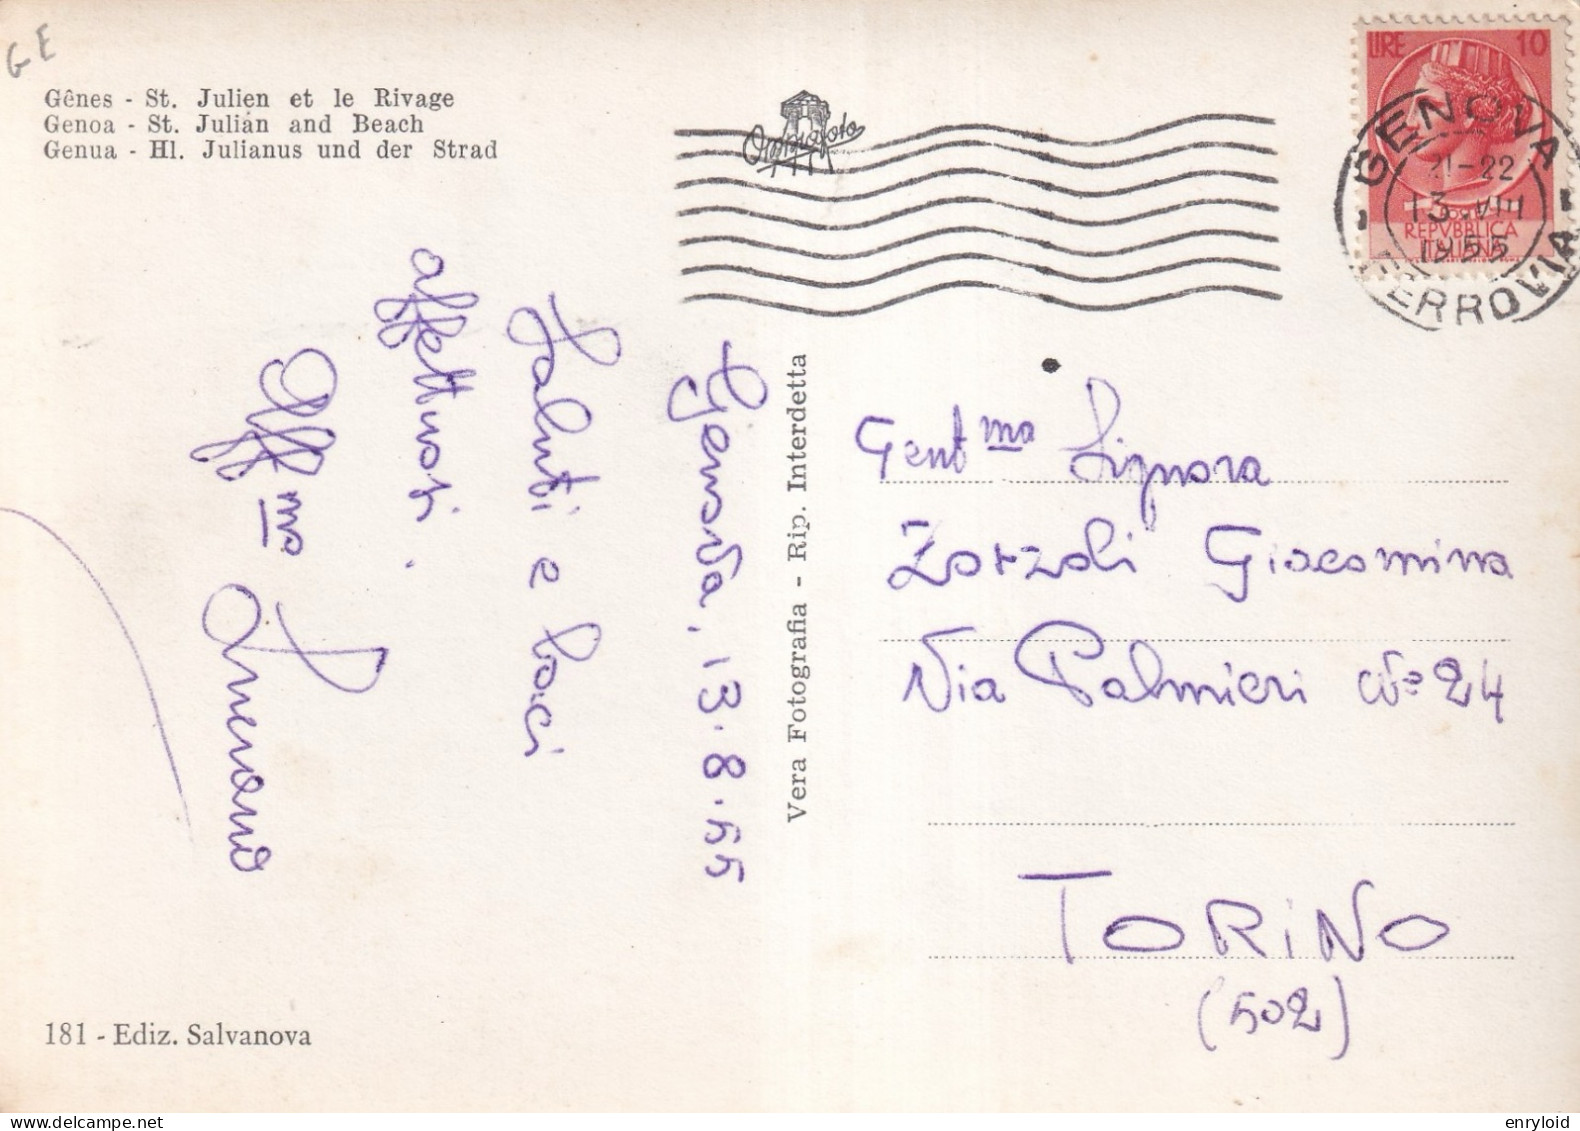 GE
Gênes - St. Julien et le Rivage
Genoa - St. Julian and Beach
Genua - Hl. Julianus und der Strad
Genova, 13.8.55
Saluti e baci
affettuosi.
Aff.mo Luciano
181 - Ediz. Salvanova
Vera Fotografia - Rip. Interdetta
LIRE 10
REPVBBLICA
ITALIANA
GENOVA
21-22
13.VIII
1955
FERROVIA
Gent.ma Signora
Zorzoli Giacomina
Via Palmieri No 24
TORINO
(502)
delcampe.net
enryloid